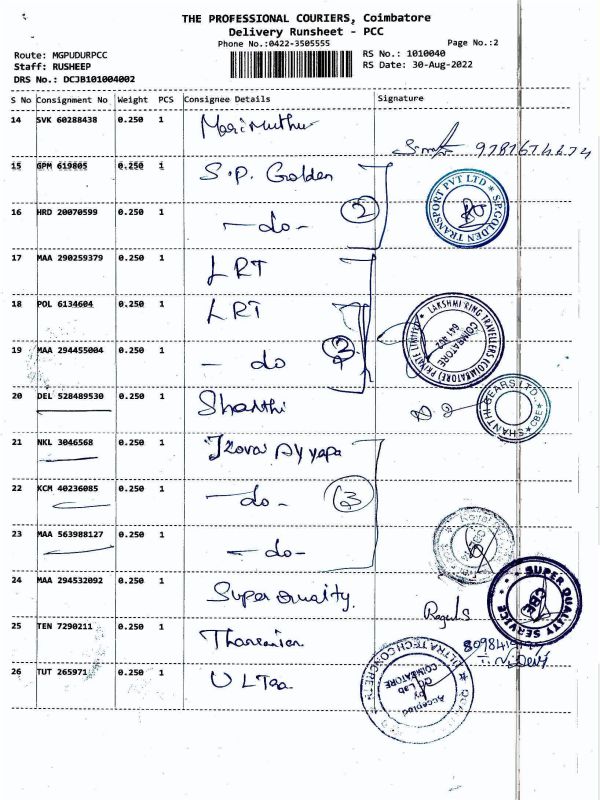 THE PROFESSIONAL COURIERS, Coimbatore
Delivery Runsheet - PCC
Phone No.:0422-3505555
Page No.:2
Route: MGPUDURPCC
RS No.: 1010040
Staff: RUSHEEP
RS Date: 30-Aug-2022
DRS No.: DCJB101004002
S No Consignment No Weight PCS Consignee Details Signature
14 SVK 60288438 0.250 1 Marimuthu
15 GPM 619805 0.250 1 S.P. Golden
16 HRD 20070599 0.250 1 - do - 2
S.P.GOLDEN TRANSPORT PVT LTD
17 MAA 290259379 0.250 1 LRT
18 POL 6134604 0.250 1 LRT
19 MAA 294455004 0.250 1 - do 3
LAKSHMI RING TRAVELLERS (COIMBATORE) PRIVATE LIMITED
COIMBATORE
641 402
20 DEL 528489530 0.250 1 Shanthi
SHANTHI GEARS LTD. CBE
21 NKL 3046568 0.250 1 Ayyapa
22 KCM 40236085 0.250 1 - do - 3
23 MAA 563988127 0.250 1 - do -
24 MAA 294532092 0.250 1 Super Quality.
SUPER QUALITY SERVICE
CBE
25 TEN 7290211 0.250 1
26 TUT 265971 0.250 1
Accepted
by
QC Lab
COIMBATORE